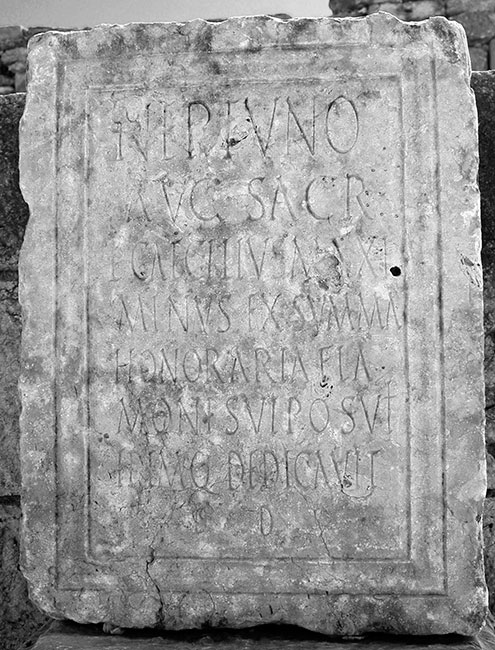 NEPTVNO
AVG SACR
L CAECILIVS MAXI
MINVS EX SVMMA
HONORARIA FLA
MONI SVI POSVIT
IDEMQ DEDICAVIT
D